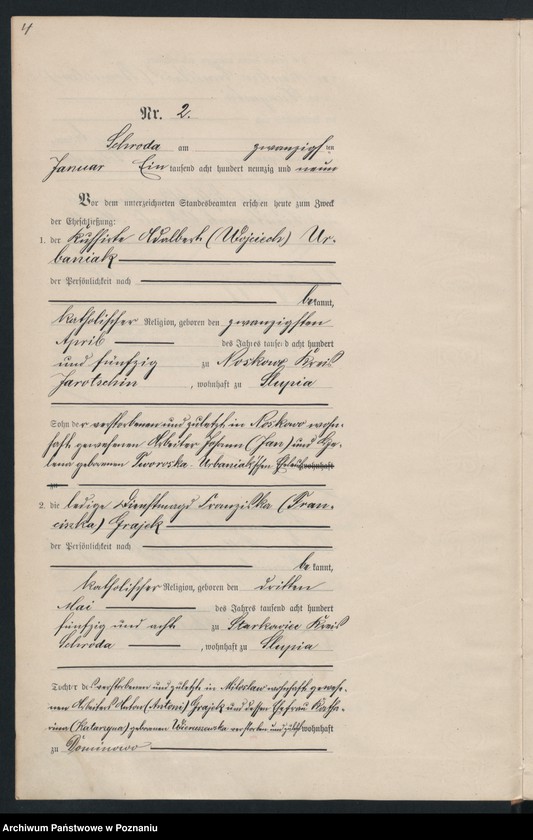 4
Nr. 2.
Schroda am zwanzigsten
Januar Ein tausend acht hundert neunzig und neun
Vor dem unterzeichneten Standesbeamten erschienen heute zum Zweck
der Eheschließung:
1. der Adalbert (Wojciech) Ur-
baniak
der Persönlichkeit nach
be kannt,
katholischer Religion, geboren den zwanzigsten
April des Jahres tausend acht hundert
und fünfzig zu Noskowo Kreis
Jarotschin, wohnhaft zu Slupia
Sohn der verstorbenen und zuletzt in Noskowo wohn-
haft gewesenen Arbeiter Johann (Jan) und He-
lena geborenen Tworoska Urbaniak'schen Eheleute wohnhaft
zu
2. die ledige Dienstmagd Franziska (Fran-
ciszka) Grajek
der Persönlichkeit nach
be kannt,
katholischer Religion, geboren den dritten
Mai des Jahres tausend acht hundert
fünfzig und acht zu Starkowiec Kreis
Schroda, wohnhaft zu Slupia
Tochter des verstorbenen und zuletzt in Miloslaw wohnhaft gewese-
nen Arbeiters Anton (Antoni) Grajek und dessen Ehefrau Katha-
rina (Katarzyna) geborenen verstorben und zuletzt wohnhaft
zu Dominowo
Archiwum Państwowe w Poznaniu